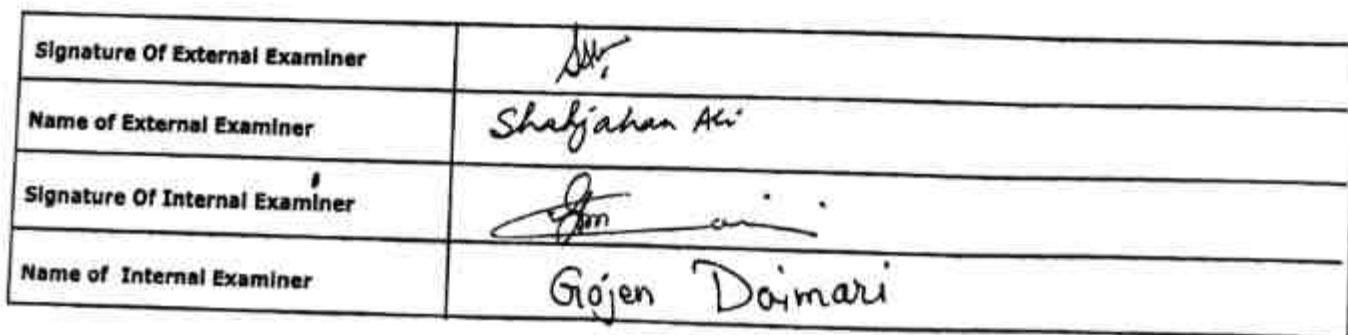 Signature Of External Examiner
Name of External Examiner Shahjahan Ali
Signature Of Internal Examiner
Name of Internal Examiner Gojen Daimari